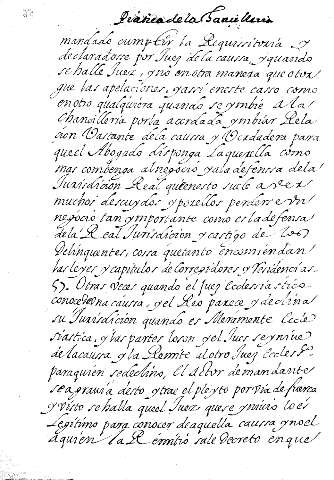 Prática de la Chancilleria
mandado cumplir la Requisitoria y
declaradose por Juez de la causa, y quando
se halle Juez, y no en otra manera que otor
gue las apelaciones, y assi en este casso como
en otro qualquiera quando se ymbie a la
Chancilleria por la acordada ymbiar Rela
cion Vastante de la caussa y Verdadera para
que el Abogado disponga la querella como
mas combenga al negocio, y a la defenssa de la
Jurisdicion Real que en esto suele aver
muchos descuydos, y por ellos perderse vn
negocio tan ymportante como es la defensa
de la Real Jurisdicion y castigo de los
Delinquentes, cossa que tanto encomiendan
las leyes y capitulos de Corregidores y Residencias.
57. Otras veces quando el Juez Ecclesiastico
conoce de vna caussa, y el Reo parece y declina
su Jurisdicion quando es Meramente Eccle
siastica, y las partes lo son y el Juez se ynive
de la caussa y la Remite al otro Juez Eccless.co
para quien se declino, El actor demandante
se agravia desto y trae el pleyto por via de fuerza
y visto se halla que el Juez que se ynivio lo es
legitimo para conocer de aquella caussa y no el
a quien la Remitio sale Decreto en que